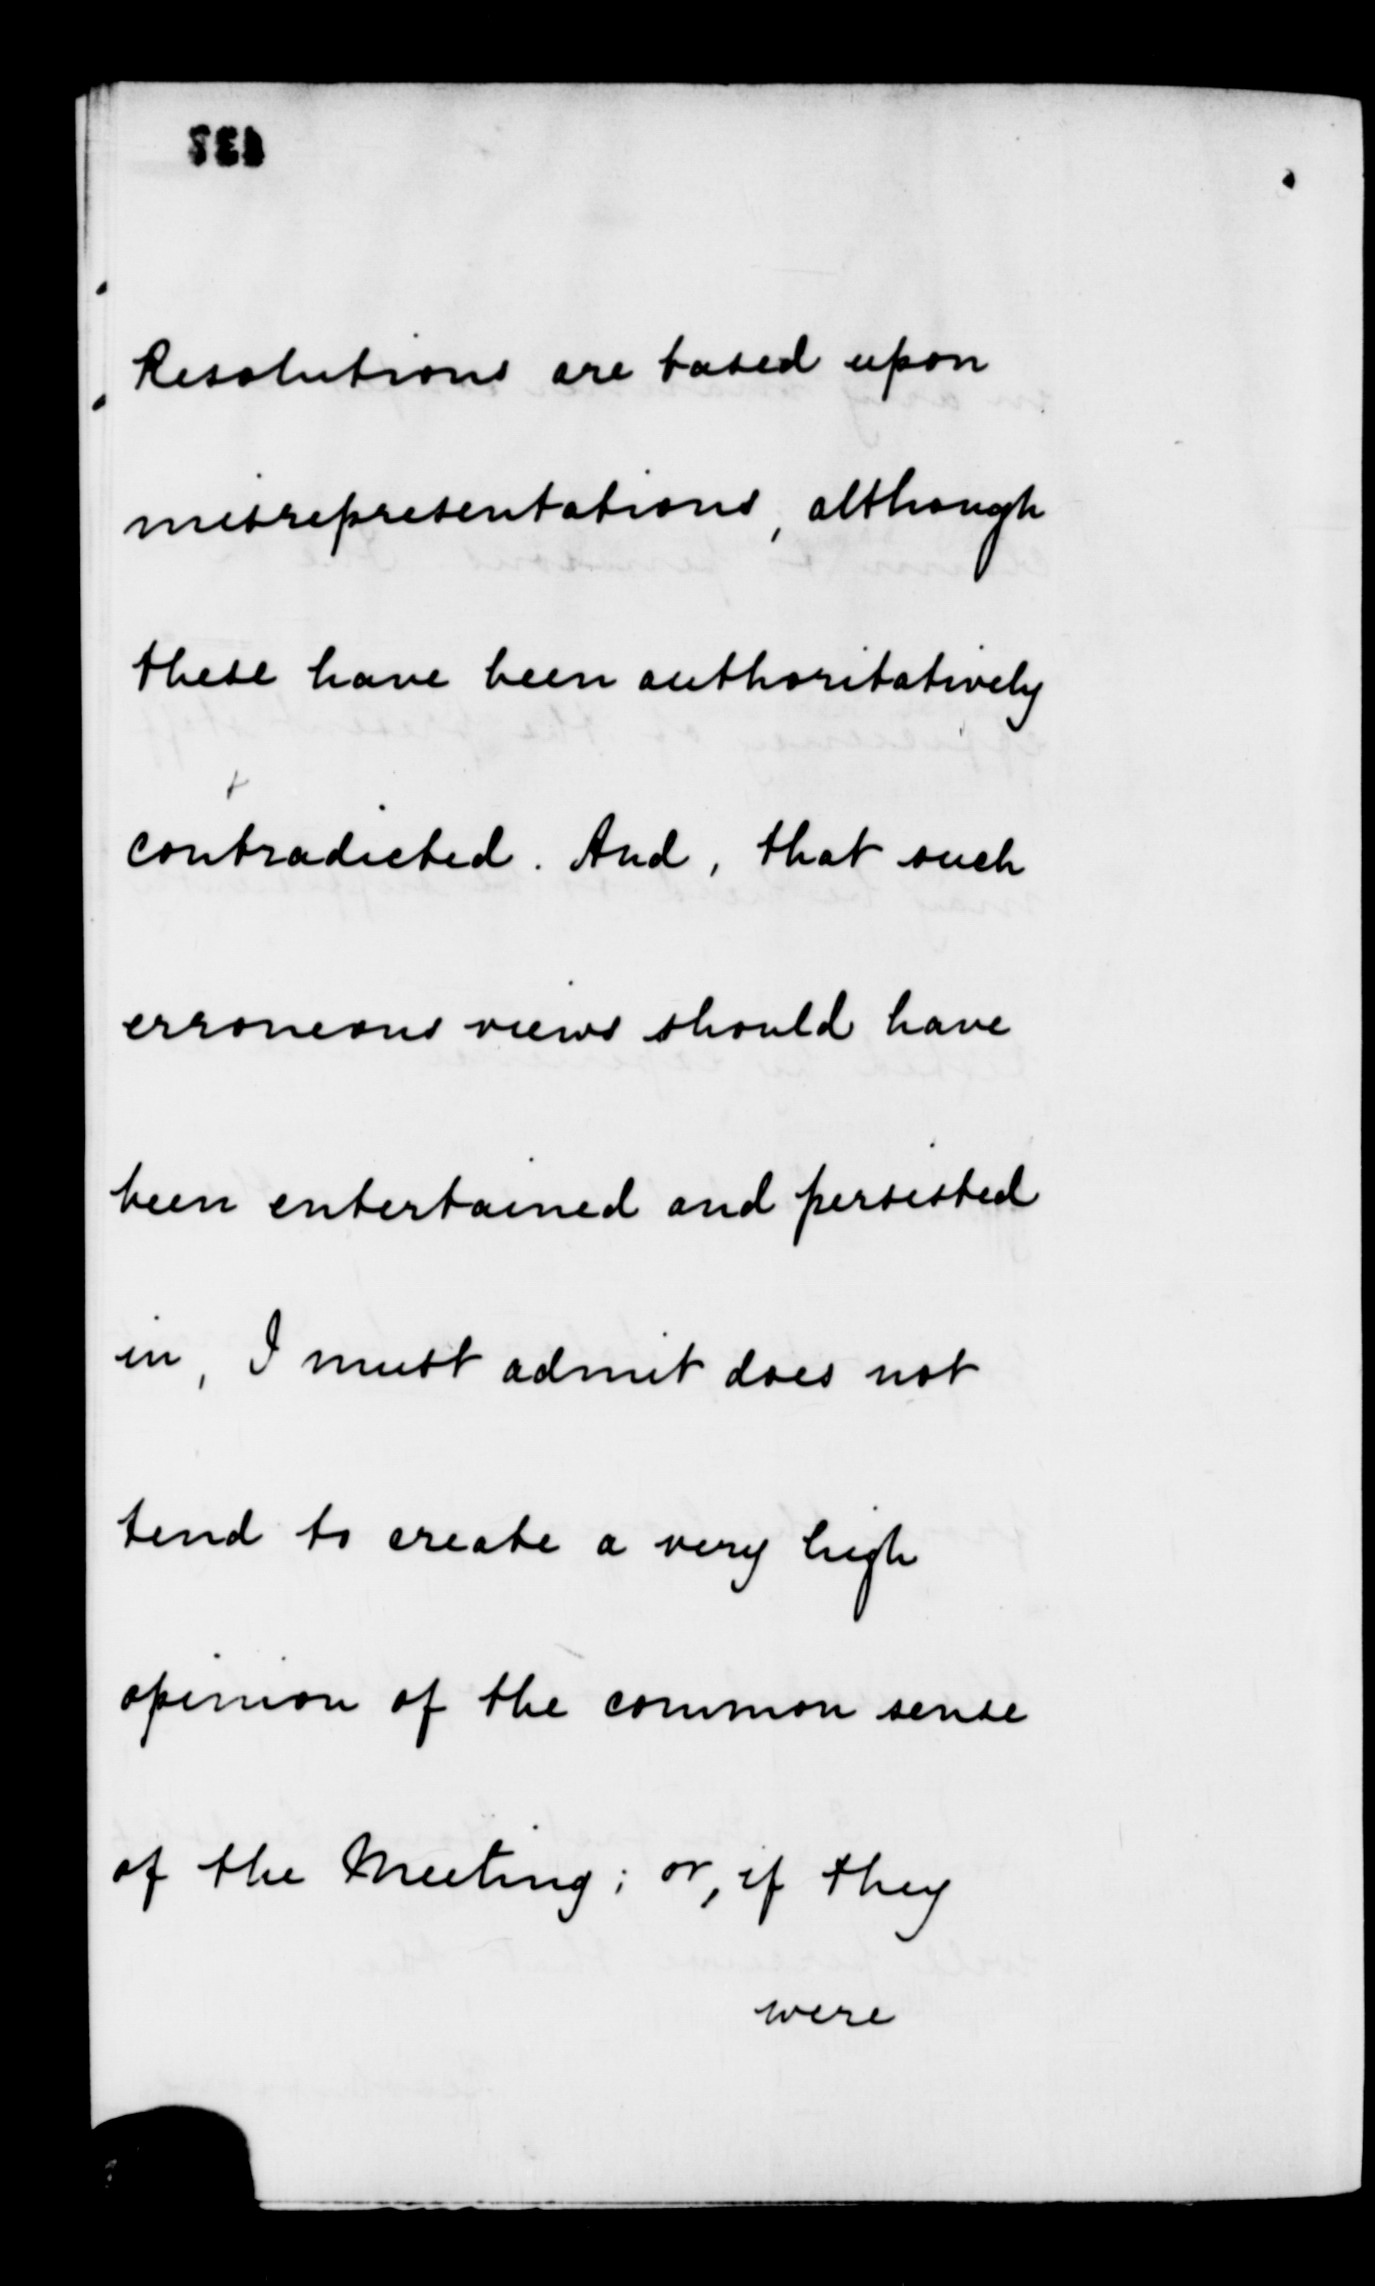 Resolutions are based upon
misrepresentations, although
these have been authoritatively
contradicted. And, that such
erroneous views should have
been entertained and persisted
in, I must admit does not
tend to create a very high
opinion of the common sense
of the Meeting; or, if they
were